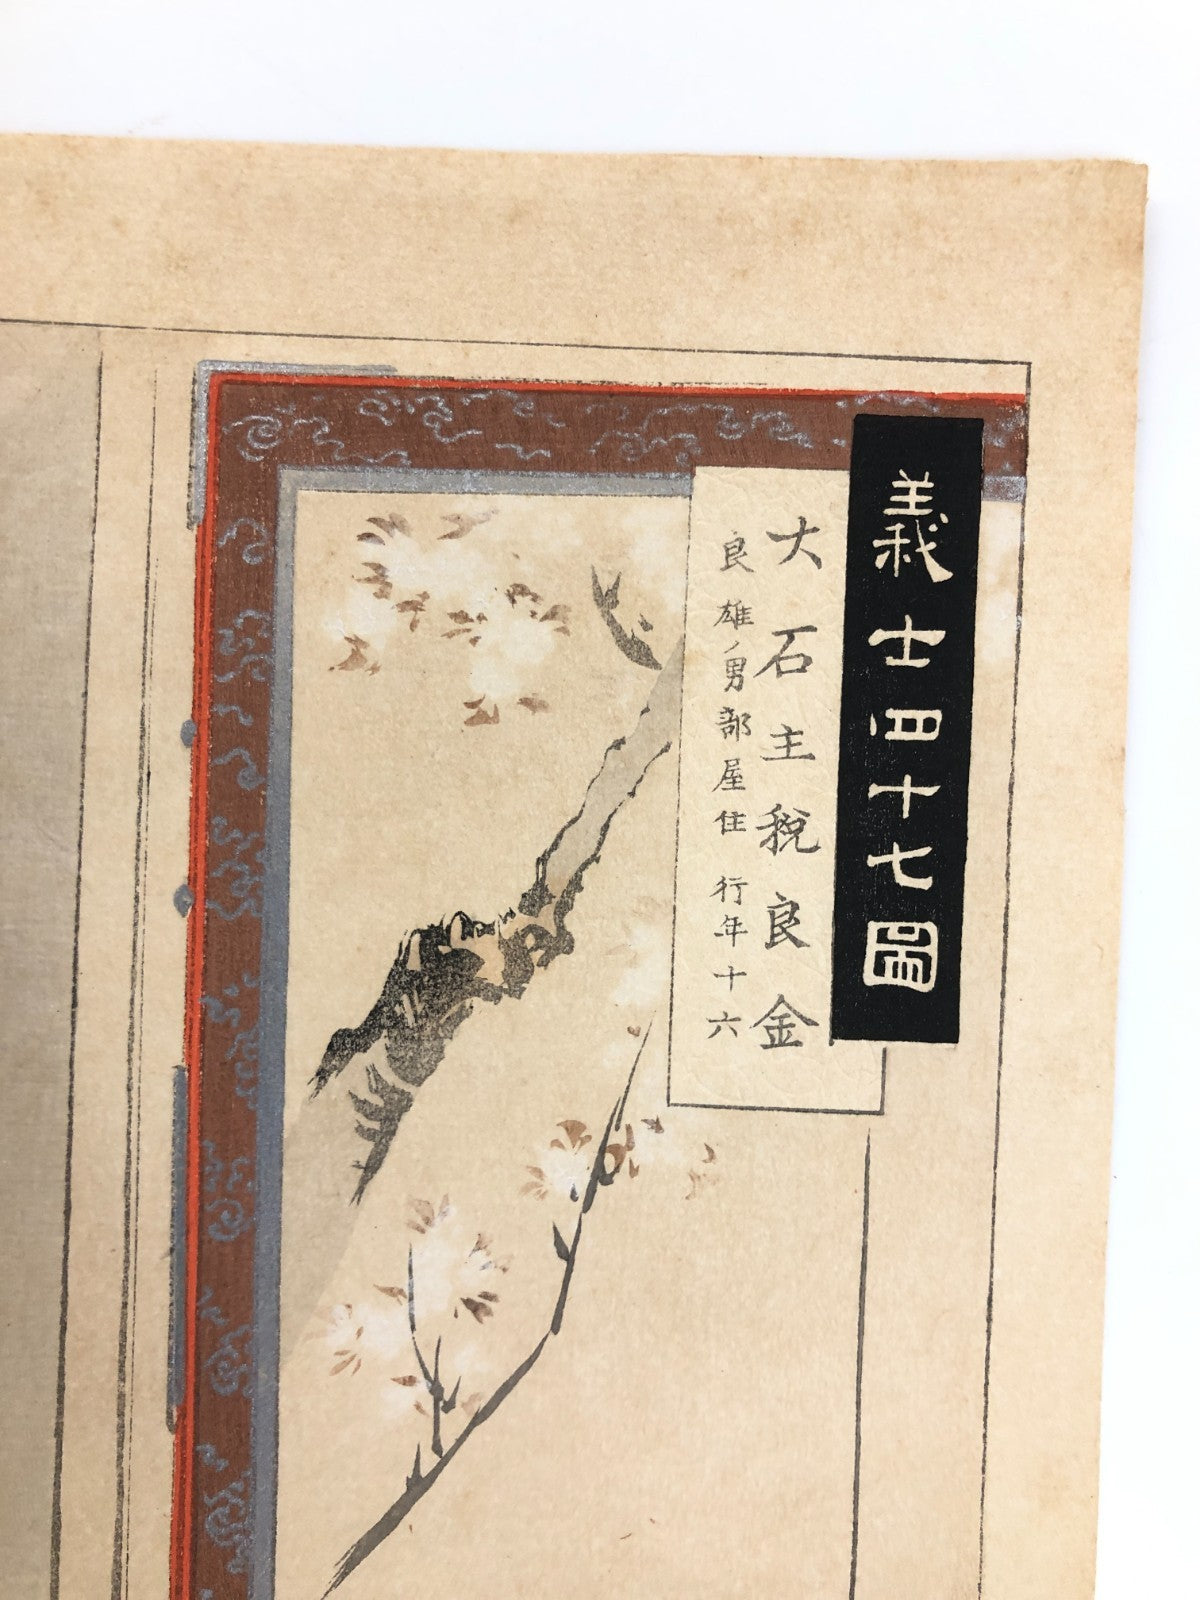 義士四十七圖
大石主税良金
良雄ノ男部屋住 行年十六